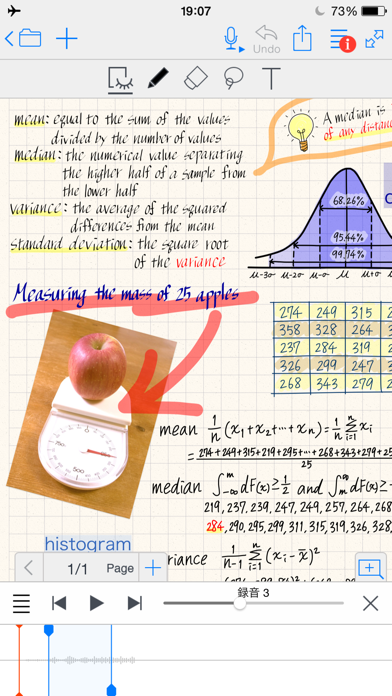 19:07
73%
Undo
T
mean: equal to the sum of the values
divided by the number of values
median: the numerical value separating
the higher half of a sample from
the lower half
variance: the average of the squared
differences from the mean
standard deviation: the square root
of the variance
A median is
of any
68.26%
95.44%
99.74%
μ-3σ μ-2σ μ-σ μ μ+σ
Measuring the mass of 25 apples
274 249 315
358 328 264
237 284 319
326 299 247
268 343 279
mean 1/n (x₁+x₂+…+xₙ)=1/n Σⁿᵢ₌₁ xᵢ
=274+249+315+219+295+…+268+343+279+
25
median ∫ᵐ₋∞ dF(x)≥1/2 and ∫∞ₘ dF(x)≥
219, 237, 239, 247, 249, 257, 264, 268
284, 290, 295, 299, 311, 315, 319, 326, 328
histogram
riance 1/n-1 Σⁿᵢ₌₁ (xᵢ-x̄)²
1/1 Page
録音 3